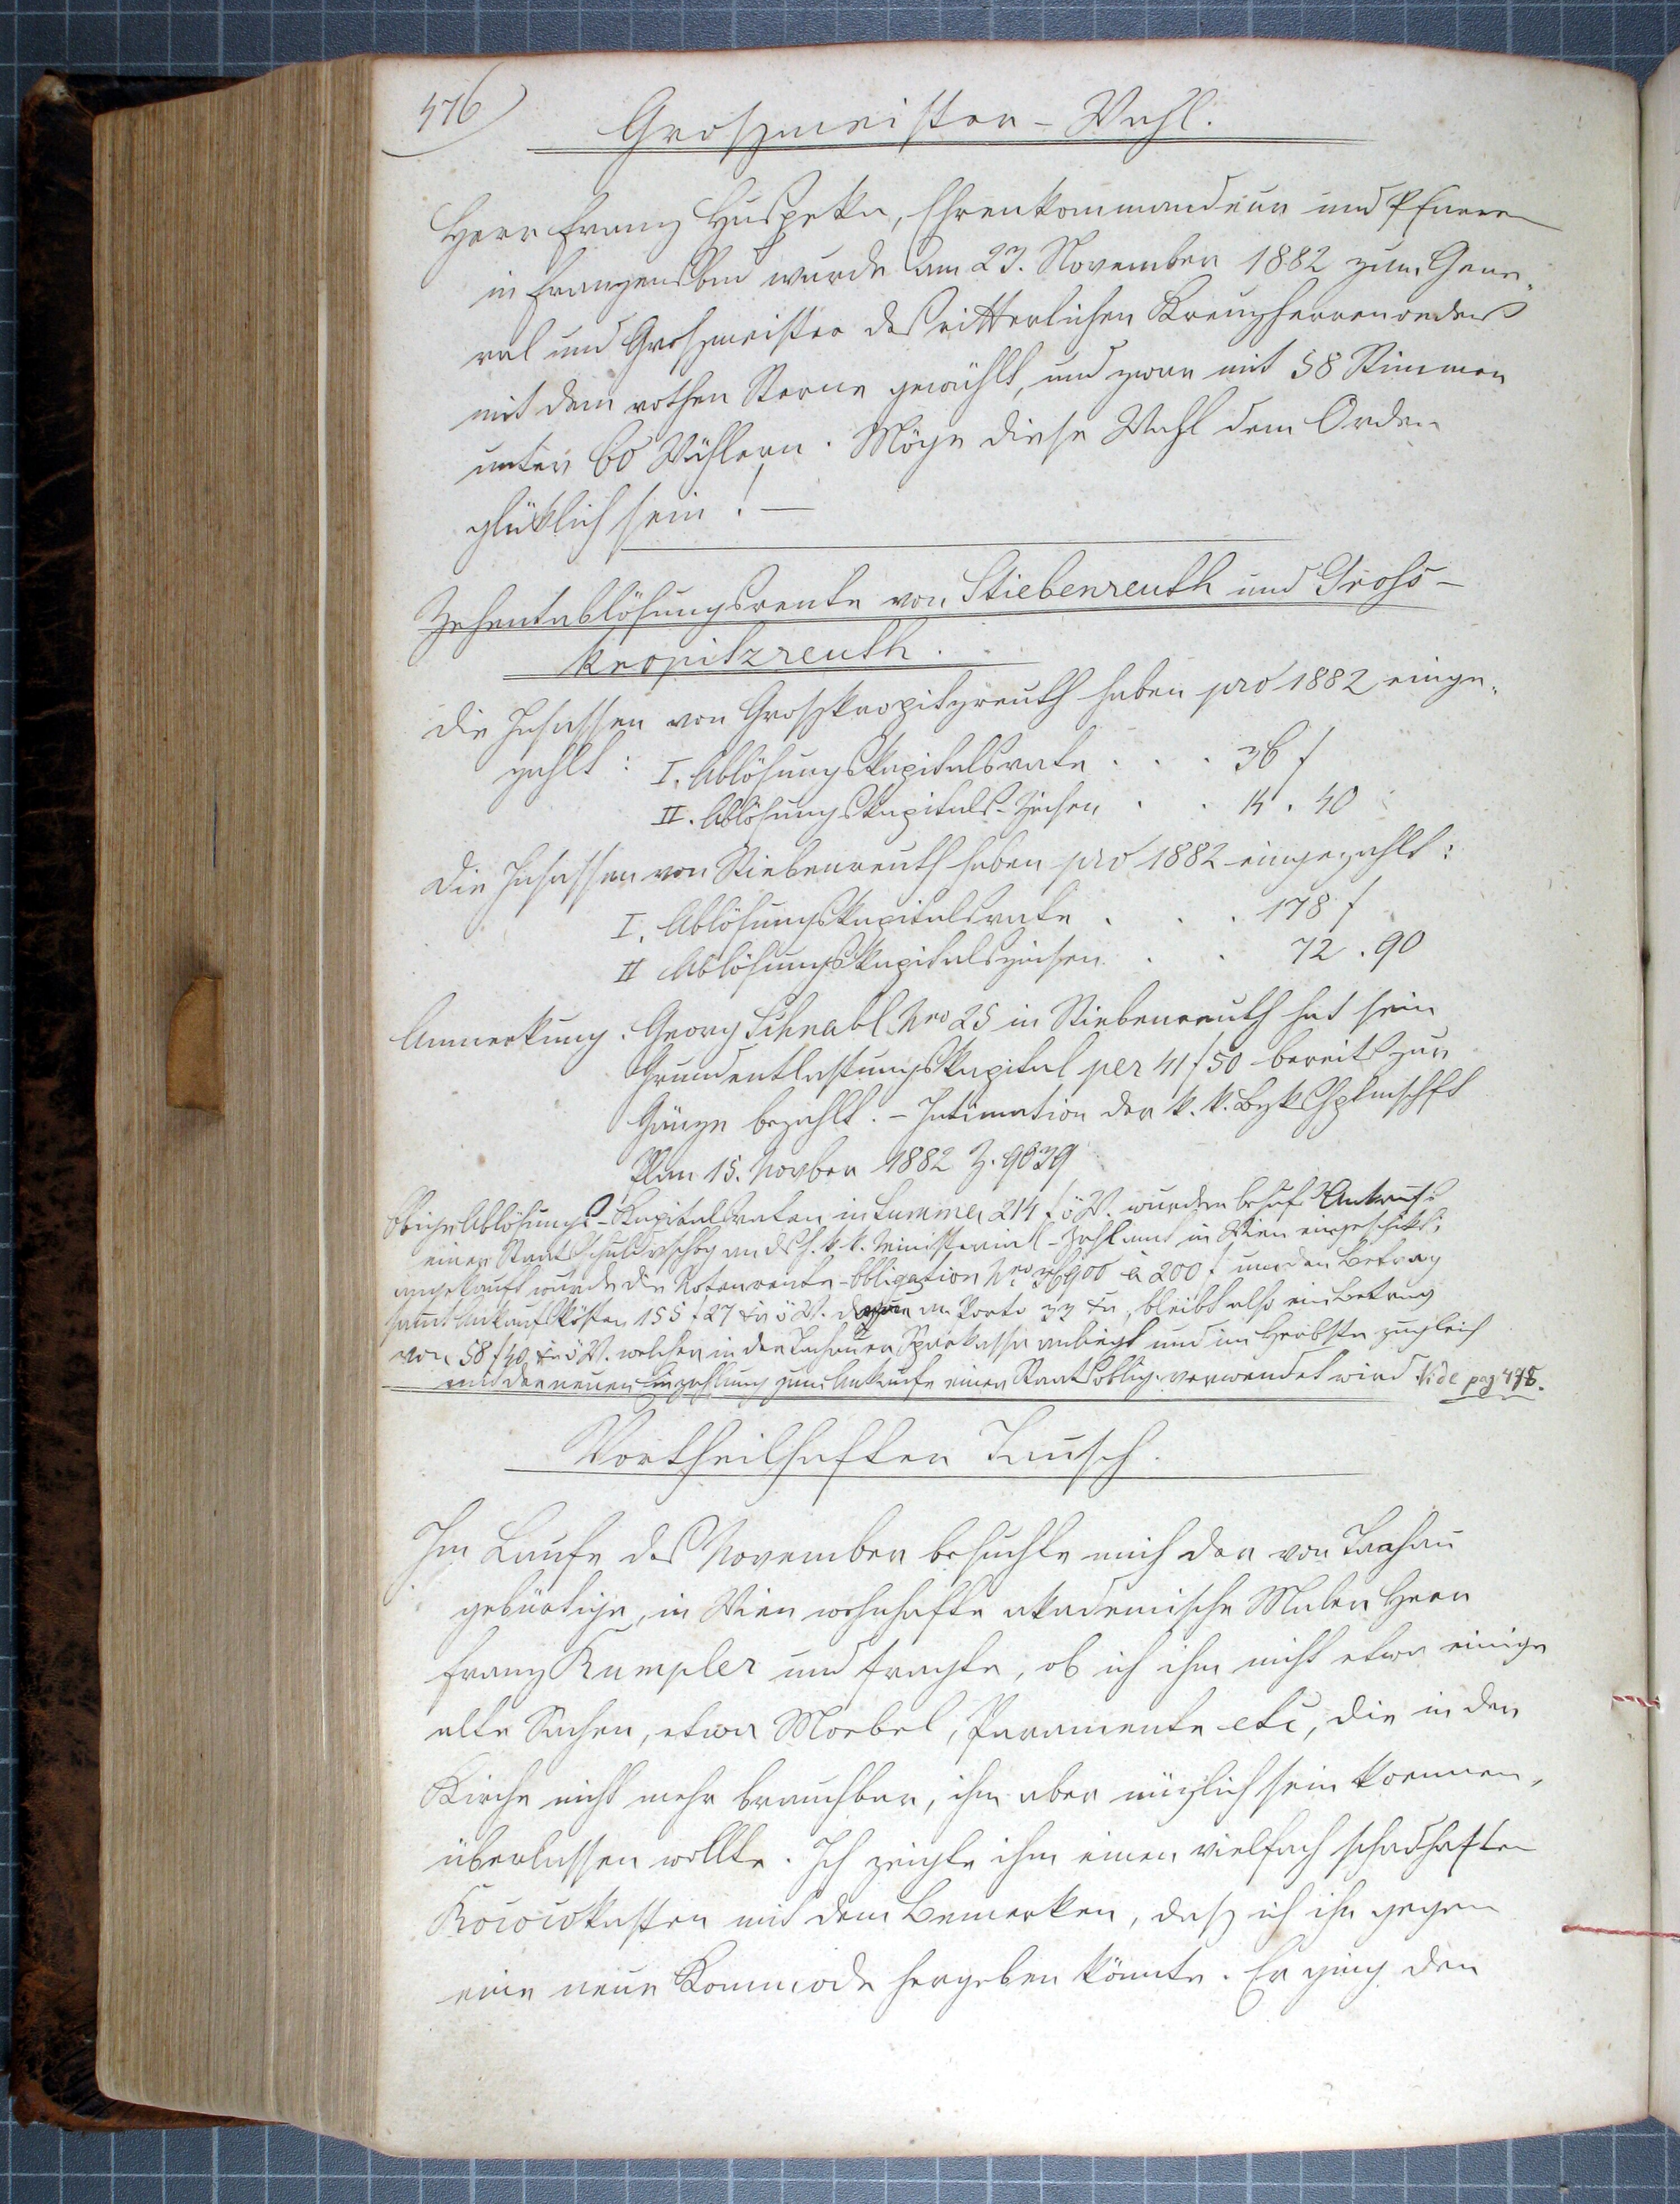 476
Groszmeister-Wahl.
Herr Franz Huspeka, Ehrenkommandeur und Pfarrer
in Franzensbad wurde am 23. November 1882 zum Gene-
ral und Groszmeister des ritterlichen Kreuzherrenordens
mit dem rothen Sterne gewählt, und zwar mit 58 Stimmen
unter 60 Wählern. Möge diese Wahl dem Orden
glüklich sein! —
Zehentablösungsrente von Stiebenreuth und Gross-
kropitzreuth.
Die Insassen von Groszkropitzreuth haben pro 1882 einge-
zahlt: I. Ablösungskapitalsrate . . . 36 f
II. Ablösungskapitals-Zinsen . . 14 . 40
Die Insassen von Stiebenreuth haben pro 1882 eingezahlt:
I. Ablösungskapitalsrate . . . 178 f
II Ablösungskapitalszinsen . . 72 . 90
Anmerkung: Georg Schnabl Nro 25 in Stiebenreuth hat sein
Grundentlastungskapital per 41 f 50 bereits zur
Gänze bezahlt. – Intimation der k. k. Bzks Hptmschft
Plan 15. Novber 1882 Z. 9839
Obige Ablösungs-Kapitalsraten in Summa 214 f ö. W. wurden behufs Ankaufs
einer Staatsschuldvschbg an das h. k. k. Ministerial-Zahlamt in Wien eingeschikt;
angekauft wurde die Notenrente-Obligation Nro 36900 à 200 f und der Betrag
sammt Ankaufskosten 155 f 27 kr ö W. an Porto 33 kr, bleibt also ein Betrag
von 58 f 40 kr ö W. welcher in der Tachauer Sparkassa anliegt und im Herbste zugleich
mit der neuen Einzahlung zum Ankaufe einer Staatsoblig. verwendet wird. Vide pag 478.
Vortheilhafter Tausch.
Im Laufe des November besuchte mich der von Tachau
gebürtige, in Wien wohnhafte akademische Maler Herr
Franz Rumpler und fragte, ob ich ihm nicht etwa einige
alte Sachen, etwa Moebel, Paramente etc, die in der
Kirche nicht mehr brauchbar, ihm aber nüzlich sein koennen,
überlassen wollte. Ich zeigte ihm einen vielfach schadhaften
Rococokasten mit dem Bemerken, dasz ich ihn gegen
eine neue Kommode hergeben könnte. Er ging den